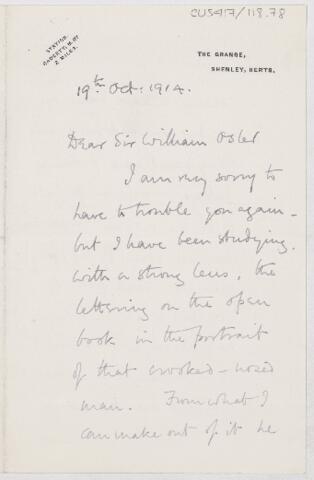 CUS417/118.78
STATION.
RADLETT, M. RY
2 MILES.
THE GRANGE,
SHENLEY, HERTS.
19th Oct: 1914.
Dear Sir William Osler
I am very sorry to
have to trouble you again -
but I have been studying,
with a strong lens, the
lettering on the open
book in the portrait
of that crooked-nosed
man. From what I
can make out of it he